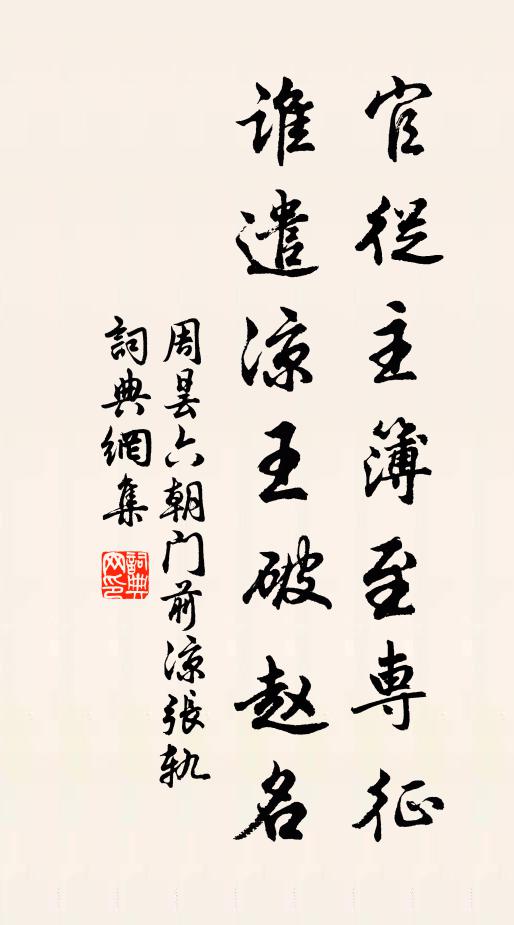 官從主簿至専征
谁遣凉王破赵名
周昙六朝门前凉張軌
詞典網集
詞典网印